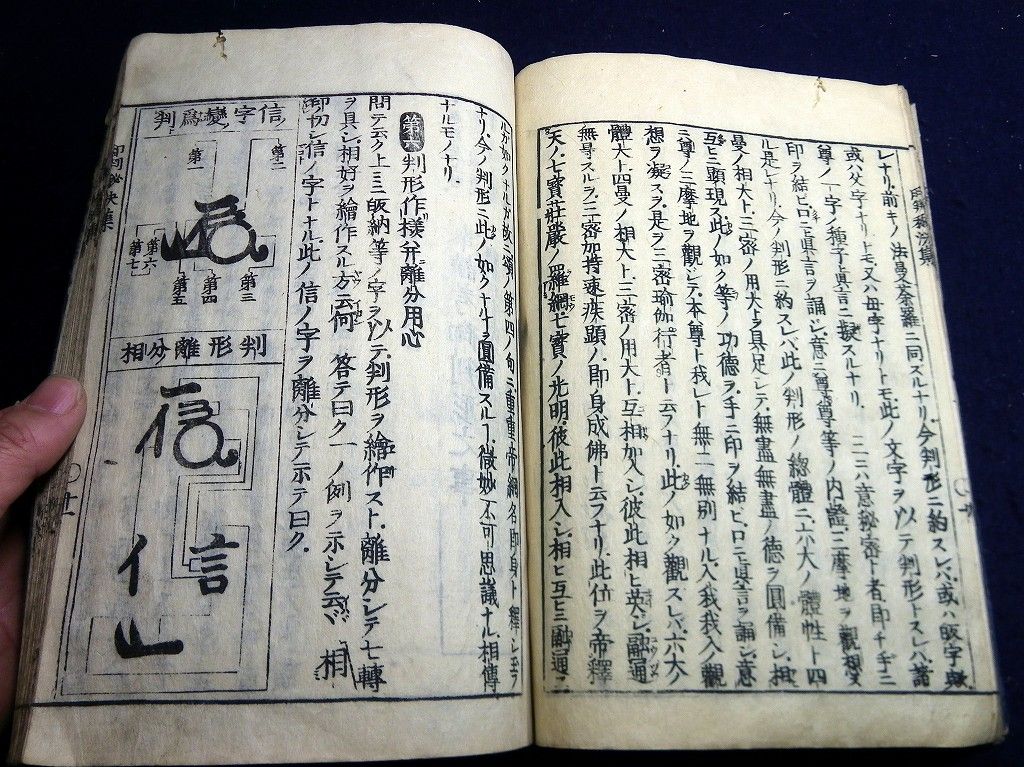 レナリ前キノ法曼荼羅ニ同ズルナリ今判形ニ約スレバ或ハ皈字歟
或ハ父字ナリトモ又ハ母字ナリトモ此ノ文字ヲ以テ判形トスレバ諸
尊ノ一字ノ種子眞言ニ擬スルナリ 二三ハ意秘密ト者即チ手ニ
印ヲ結ビ口ニ眞言ヲ誦シ意ニ尊尊等ノ内證三摩地ヲ觀想
ル是レナリ今ノ判形ニ約スレバ此ノ判形ノ總體ニ六大ノ體性ト四
曼ノ相大ト三密ノ用大トヲ具足シテ無盡無盡ノ德ヲ圓備シ相
互ヒニ顯現ス此クノ如ク等ノ功德ヲ手ニ印ヲ結ヒ口ニ眞言ヲ誦シ意
ニ尊ノ三摩地ヲ觀シテ本尊ト我レト無二無別ナル入我我入觀
想ヲ凝スヲ是ヲ三密瑜伽行者ト云フナリ此クノ如ク觀スレバ六大
體大ト四曼ノ相大ト三密ノ用大ト互ニ相如入シ彼此相ヒ英シ融通
無导スルヲ三密加持速疾顯ノ即身成佛ト云フナリ此位ヲ帝釋
天ノ七寶莊嚴ノ羅網七寶ノ光明彼此相入シ相ヒ互ヒニ融通ニ
ルガ如クナルガ故ニ頌ノ第四ノ句ニ重重帝網名即身ト釋シ玉フ
ナリ今ノ判形ニ此クノ如クナルヲ圓備スル
微妙不可思議ナル相傳
ナルモノナリ
判形作樣幷離分用心
問テ云ク上ニ皈納等ノ字ヲ以テ判形ヲ繪作スト離分シテ七轉
ヲ具シ相好ヲ繪作スル方云何 答テ曰ク一ノ例ヲ示シテ云バ 相
卽切シ信ノ字トナル此ノ信ノ字ヲ離分シテ示テ曰ク
信字變爲判
第一
第二
第三
第四
第五
第六
第七
判形離分相
信
言
亻